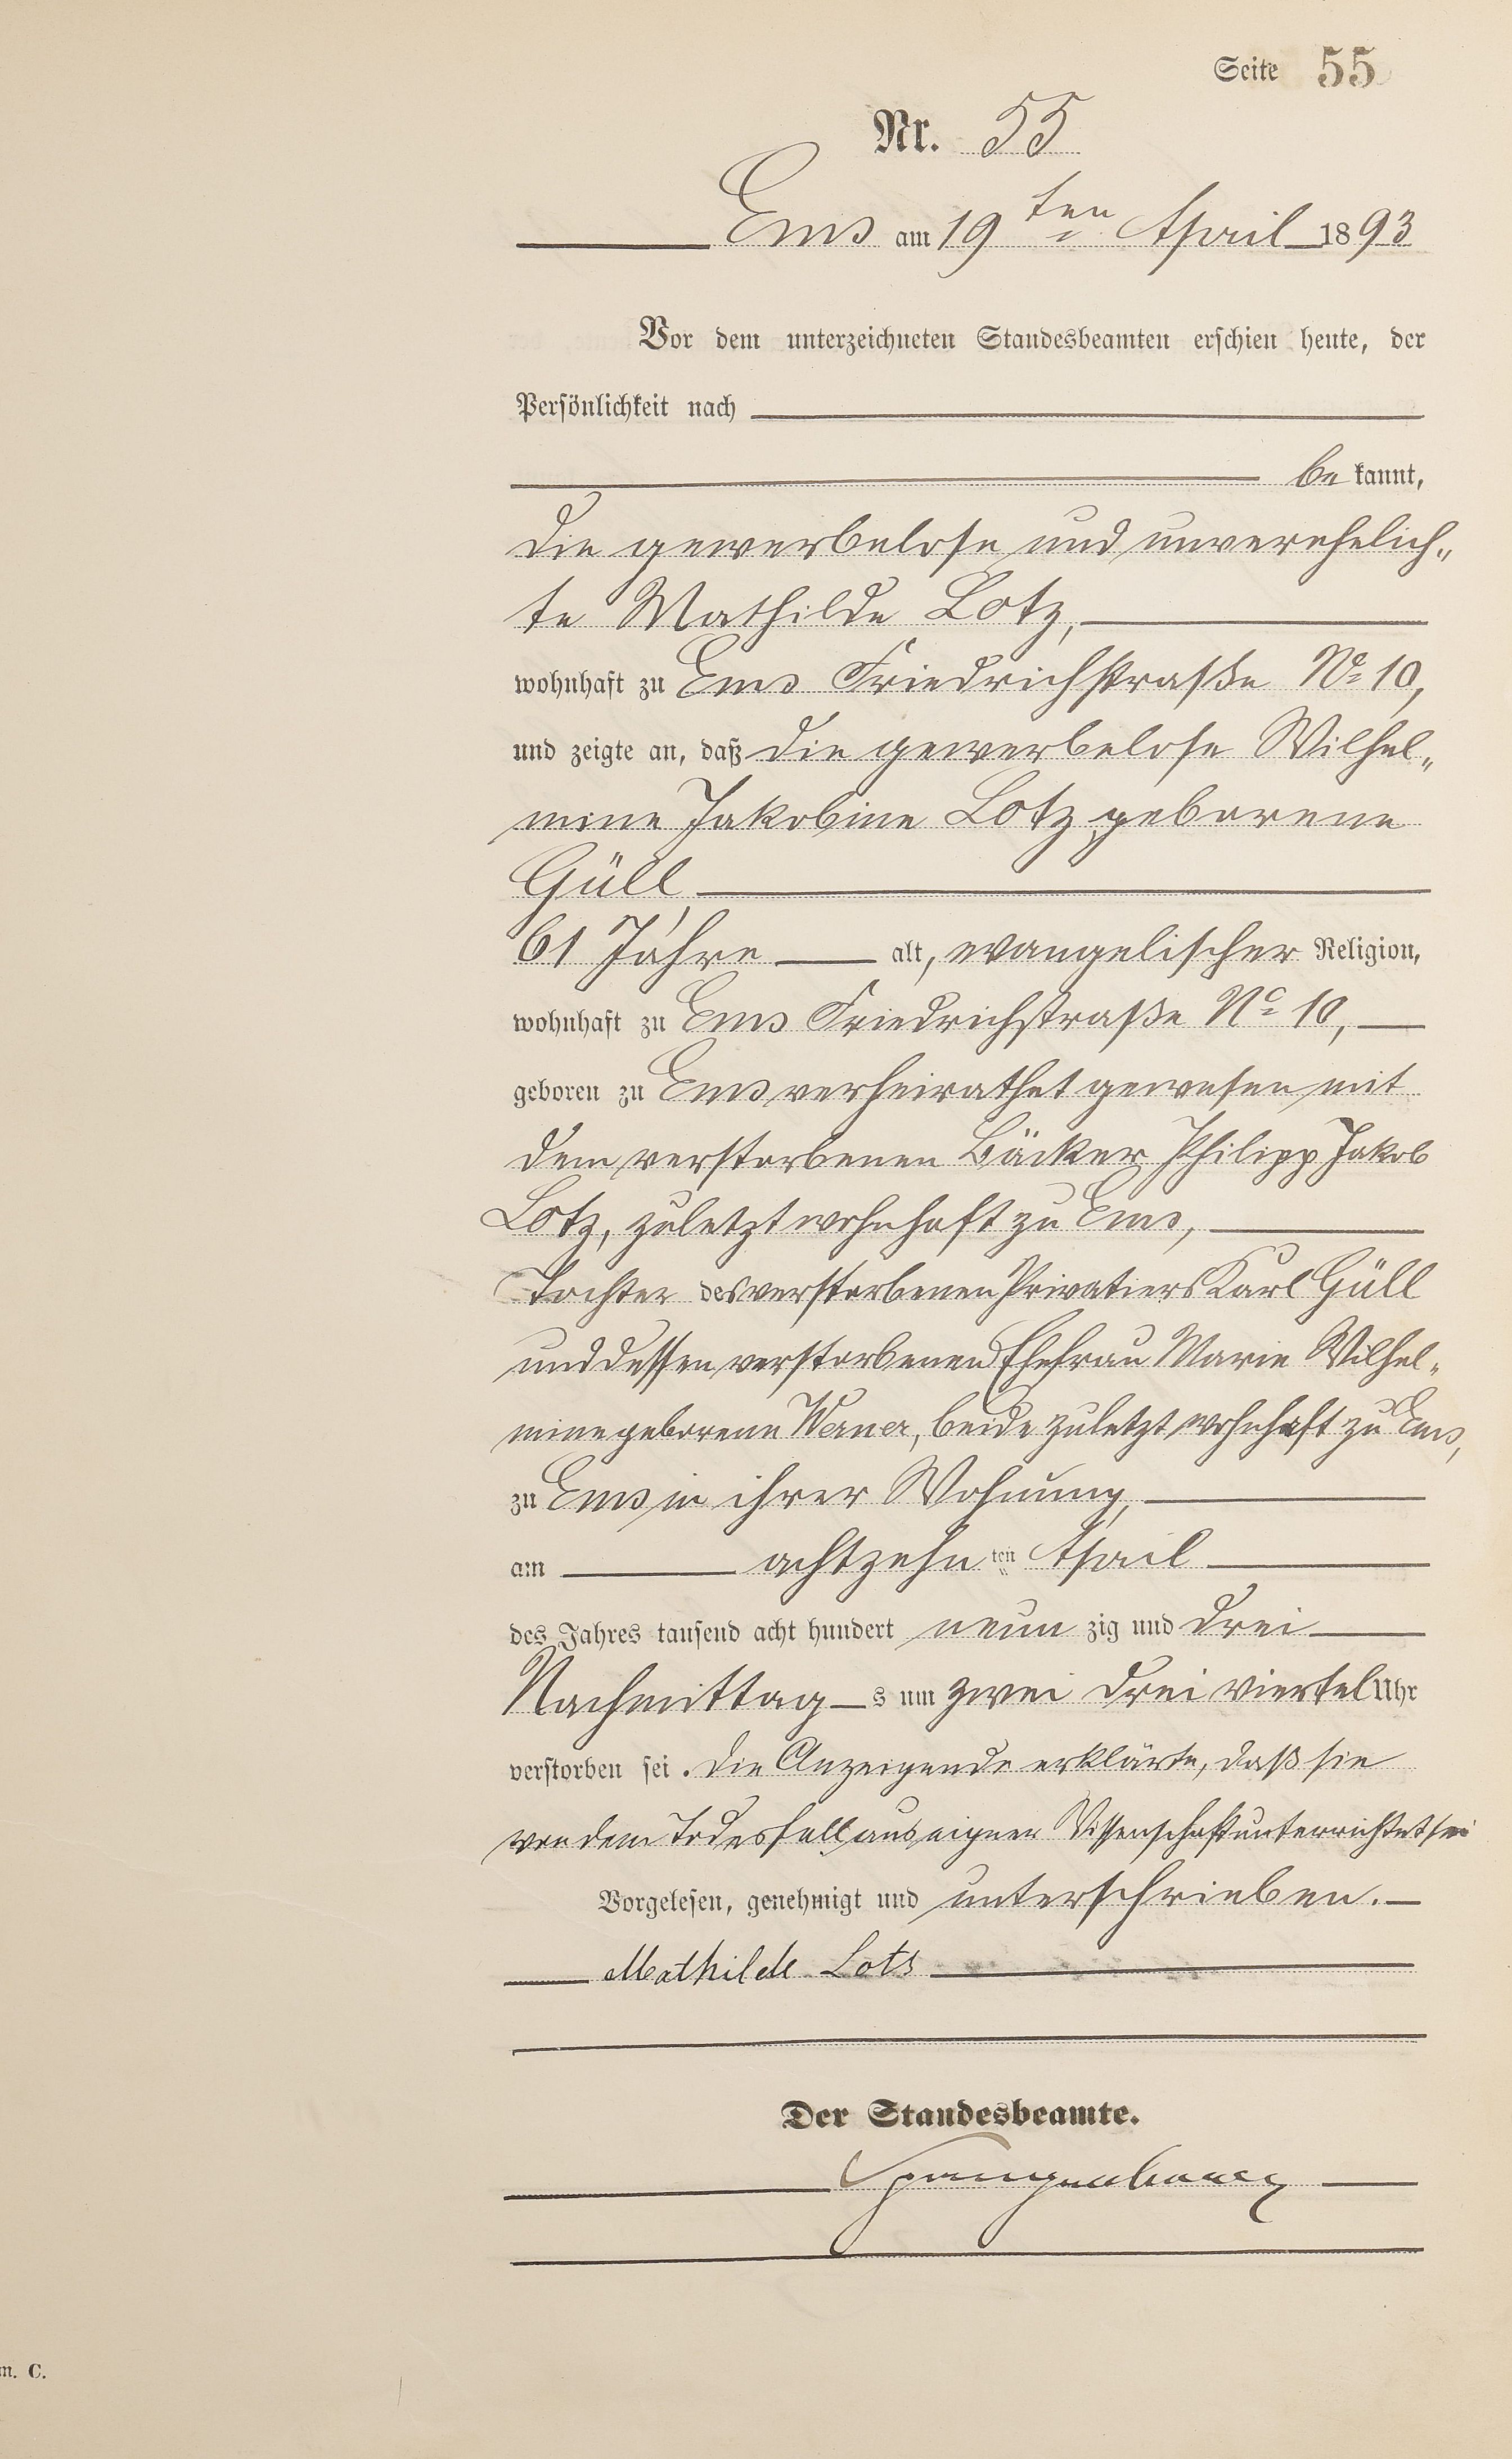 Seite 55
Nr. 55
Ems am 19ten April 1893
Vor dem unterzeichneten Standesbeamten erschien heute, der
Persönlichkeit nach
be kannt,
die gewerbelose und unverehelich„
te Mathilde Lotz,
wohnhaft zu Ems Friedrichstraße No 10,
und zeigte an, daß die gewerbelose Wilhel„
mine Jakobine Lotz geborene
Güll
61 Jahre alt, evangelischer Religion,
wohnhaft zu Ems Friedrichstraße No 10,
geboren zu Ems verheirathet gewesen mit
dem verstorbenen Bäcker Philipp Jakob
Lotz, zuletzt wohnhaft zu Ems,
Tochter des verstorbenen Privatiers Karl Güll
und dessen verstorbenen Ehefrau Marie Wilhel„
mine geborene Werner, beide zuletzt wohnhaft zu Ems,
zu Ems in ihrer Wohnung,
am achtzehn ten April
des Jahres tausend acht hundert neun zig und drei
Nachmittag s um zwei drei viertel Uhr
verstorben sei. Die Anzeigende erklärte, daß sie
von dem Todesfall aus eigner Wissenschaft unterrichtet sei
Vorgelesen, genehmigt und unterschrieben.
Mathilde Lotz
Der Standesbeamte.
m. C.